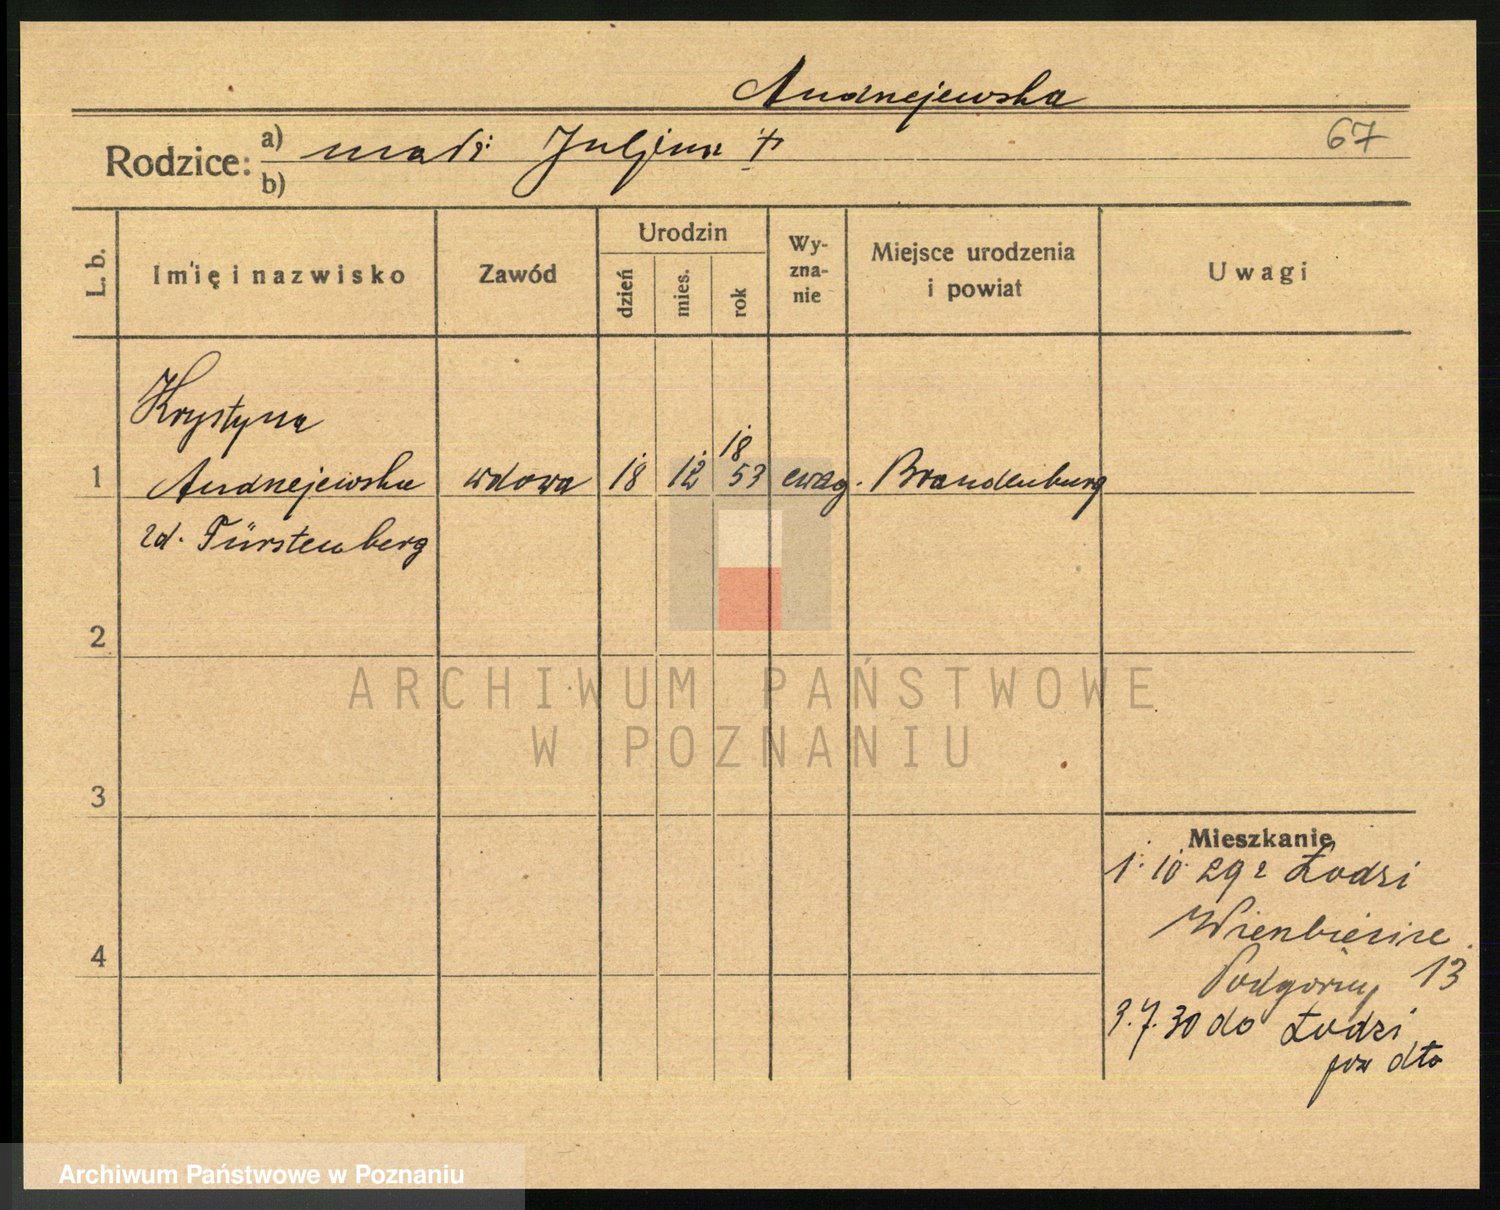 Andrzejewska
67
Rodzice: a) mąż: Juljusz †
b)
L. b.
Imię i nazwisko
Zawód
Urodzin
dzień
mies.
rok
Wy-
zna-
nie
Miejsce urodzenia
i powiat
Uwagi
Krystyna
18
1 Andrzejewska wdowa 18 12 53 ewag. Brandenburg
zd. Fürstenberg
2
ARCHIWUM PAŃSTWOWE
W POZNANIU
3
Mieszkanie
1. 10. 29 z Łodzi
4
Podgórny 13
3.7.30 do Łodzi
dto
Archiwum Państwowe w Poznaniu